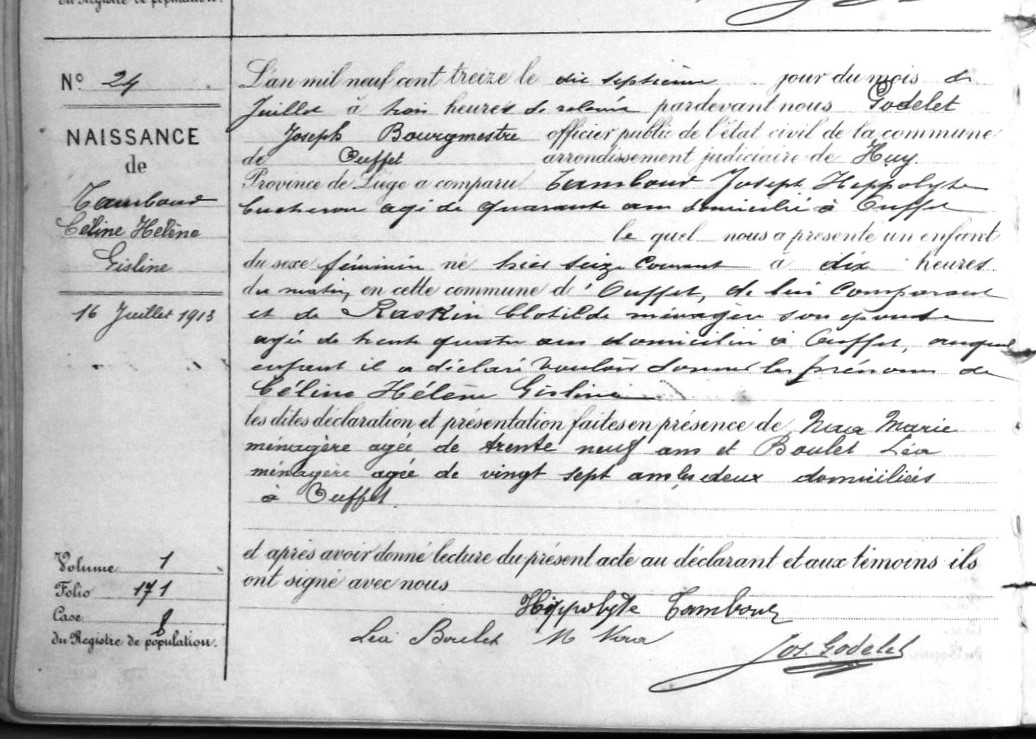 du Registre de population.
N° 24
NAISSANCE
de
Tambour
Céline Hélène
Gisline
16 Juillet 1913
Volume 1
Folio 171
Case 8
du Registre de population.
L'an mil neuf cent treize le dix septième jour du mois de
Juillet à trois heures de relevée pardevant nous Godelet
Joseph Bourgmestre officier public de l'état civil de la commune
de Ouffet arrondissement judiciaire de Huy
Province de Liége a comparu Tambour Joseph Hippolyte
bucheron agé de quarante ans domicilié à Ouffet
le quel nous a présenté un enfant
du sexe féminin né hier seize courant à dix heures
du matin, en cette commune d'Ouffet, de lui comparant
et de Raskin Clotilde ménagère son épouse
agée de trente quatre ans domiciliée à Ouffet, auquel
enfant il a déclaré vouloir donner les prénoms de
Céline Hélène Gisline
les dites déclaration et présentation faites en présence de Marie
ménagère agée de trente neuf ans et Boulet Léa
ménagère agée de vingt sept ans les deux domiciliées
à Ouffet.
et après avoir donné lecture du présent acte au déclarant et aux témoins ils
ont signé avec nous
Hippolyte Tambour
Léa Boulet M
Jos. Godelet